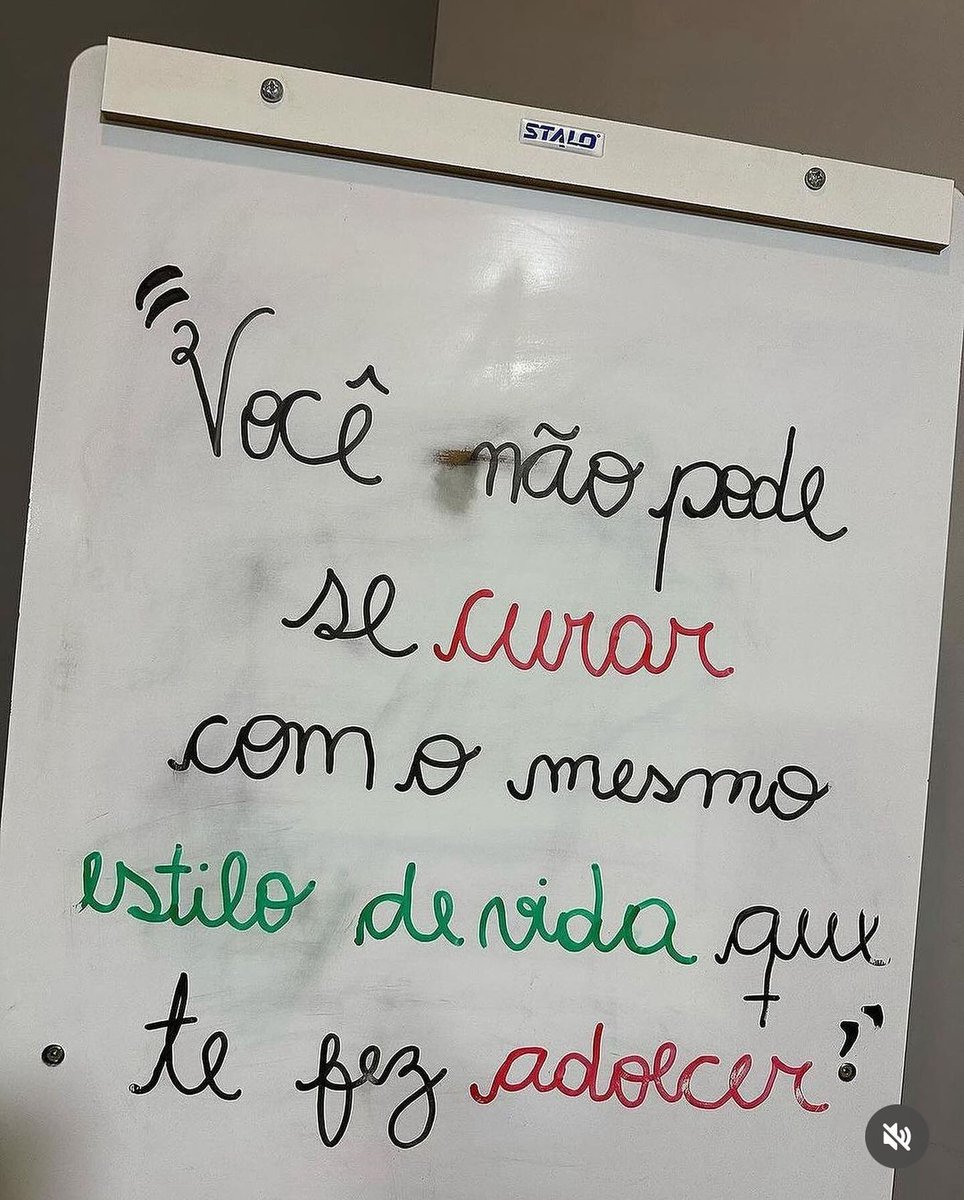 STALO
"Você não pode
se curar
com o mesmo
estilo de vida que
te fez adoecer"